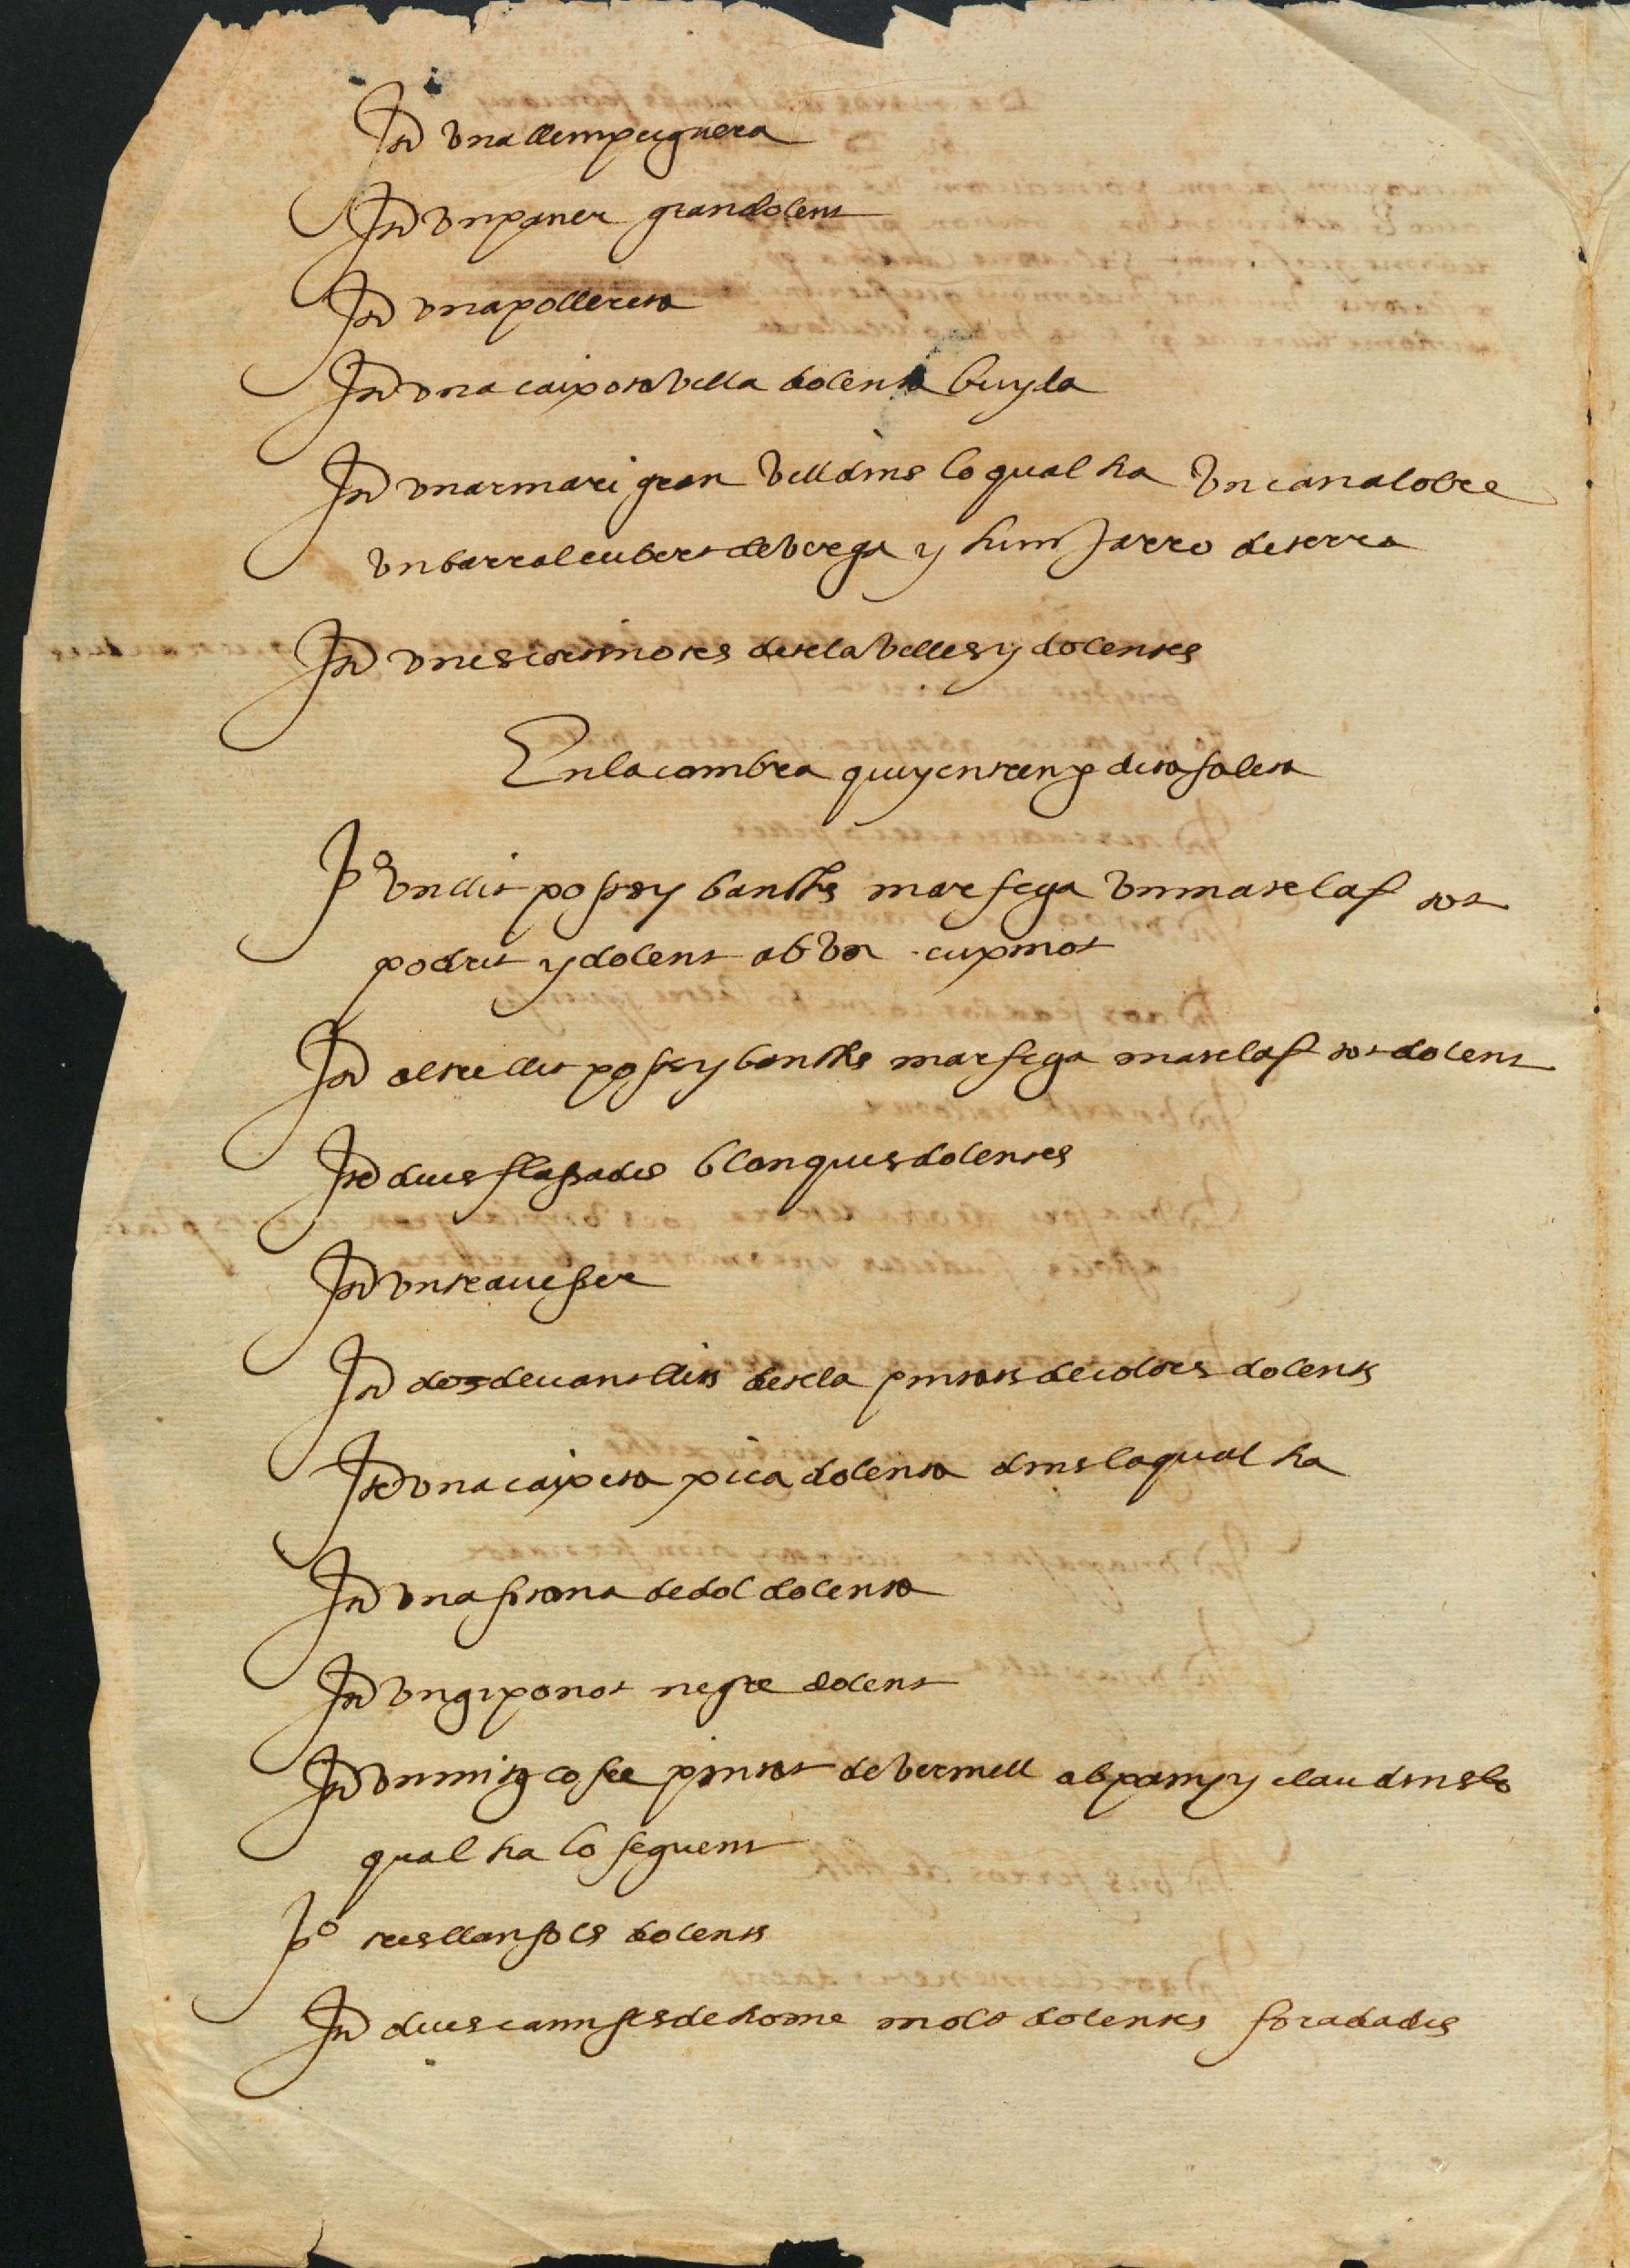 Itt una llempugnera
Itt un paner gran dolent
Itt una pollereta
Itt una caixota vella dolenta buyda
Itt un armari gran vell dins lo qual ha un canalobre
un barral cubert de verga y hum Jarro de terra
Itt unes cortinotes de tela velles y dolentes
En la cambra qui y entren p dita saleta
Pº un llit posts y banchs marfega un matelaf tot
podrit y dolent ab un cuxinot
Itt altre llit posts y banchs marfega matelaf tot dolent
Itt dues flassades blanques dolentes
Itt un travesser
Itt dos devant llits de tela pintats de colors dolents
Itt una caixeta pica dolenta dins la qual ha
Itt una sotana de dol dolenta
Itt un giponot negre dolent
Itt un mitg cofre pintat de vermell ab pany y clau dins lo
qual ha lo seguent
Pº tres llansols dolents
Itt dues camises de home molt dolentes foradades